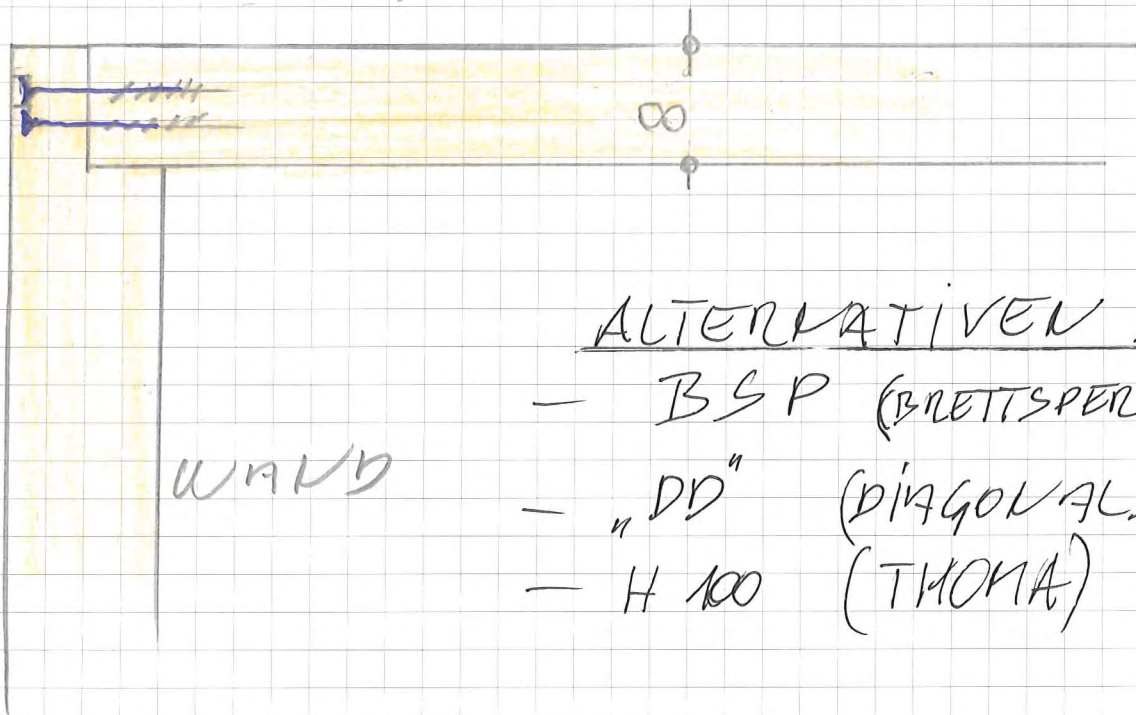 8
ALTERNATIVEN
- BSP (BRETTSPER
WAND
- „DD" (DIAGONAL
- H 100 (THOMA)